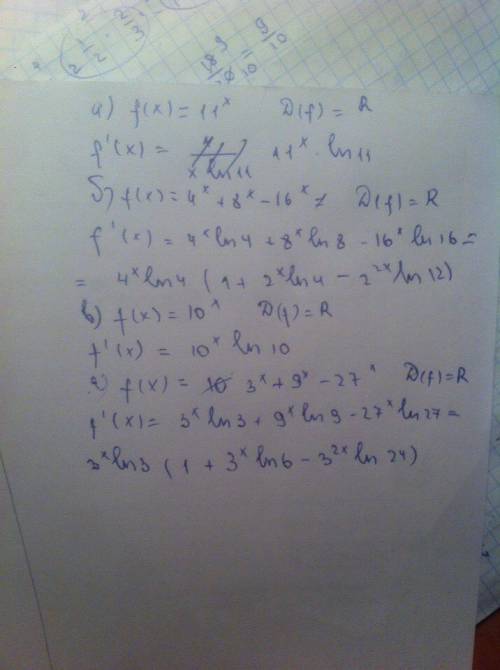 9
10 = 9/10
а) f(x) = 11^x D(f) = R
f'(x) = x ln 11 11^x · ln 11
б) f(x) = 4^x + 8^x - 16^x D(f) = R
f'(x) = 4^x ln 4 + 8^x ln 8 - 16^x ln 16 =
= 4^x ln 4 ( 1 + 2^x ln 4 - 2^2x ln 12)
в) f(x) = 10^x D(f) = R
f'(x) = 10^x ln 10
г) f(x) = 10 3^x + 9^x - 27^x D(f) = R
f'(x) = 3^x ln 3 + 9^x ln 9 - 27^x ln 27 =
3^x ln 3 ( 1 + 3^x ln 6 - 3^2x ln 24)